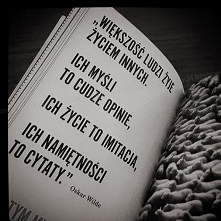 „WIĘKSZOŚĆ LUDZI ŻYJE
ŻYCIEM INNYCH.
ICH MYŚLI
TO CUDZE OPINIE,
ICH ŻYCIE TO IMITACJA,
ICH NAMIĘTNOŚCI
TO CYTATY.”
Oskar Wilde
TYM